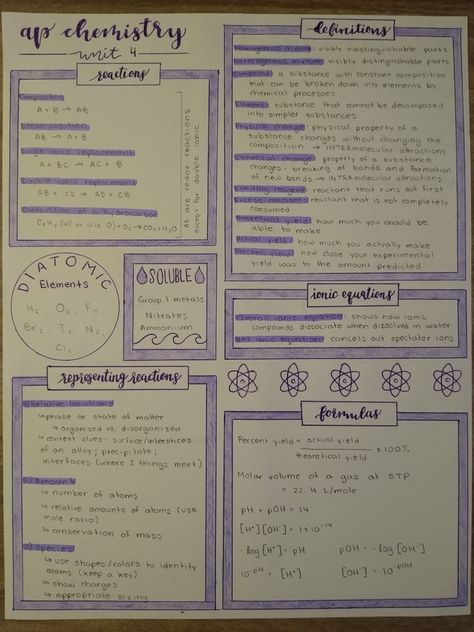 ap chemistry
unit 4
reactions
Composition
A + B → AB
Decomposition
AB → A + B
Single ionic replacement
A + BC → AC + B
Double ionic replacement
AB + CD → AD + CB
Combustion of a hydrocarbon
CₓHᵧ (w/ or w/o O) + O₂ → CO₂ + H₂O
All are redox reactions
except for double ionic
DIATOMIC
Elements
H₂, O₂, F₂,
Br₂, I₂, N₂,
Cl₂
SOLUBLE
Group 1 metals
Nitrates
Ammonium
representing reactions
1) Relative locations
↳ phase or state of matter
↳ organized vs. disorganized
↳ context clues: surface/interstices
of an alloy; precipitate;
interfaces (where 2 things meet)
2) Amount
↳ number of atoms
↳ relative amounts of atoms (use
mole ratio)
↳ conservation of mass
3) Species
↳ use shapes/colors to identify
atoms (keep a key)
↳ show charges
↳ appropriate sizing
definitions
Homogenous mixture: visibly indistinguishable parts
Heterogenous mixture: visibly distinguishable parts
Compound: a substance with constant composition
that can be broken down into elements by
chemical processes
Element: substance that cannot be decomposed
into simpler substances
Physical change: physical property of a
substance changes without changing the
composition → INTERmolecular attractions
Chemical change: property of a substance
changes - breaking of bonds and formation
of new bonds → INTRAmolecular attractions
Limiting reagent: reactant that runs out first
Excess reactant: reactant that is not completely
consumed
Theoretical yield: how much you should be
able to make
Actual yield: how much you actually make
Percent yield: how close your experimental
yield was to the amount predicted
ionic equations
Overall ionic equation: shows how ionic
compounds dissociate when dissolved in water
Net ionic equation: cancels out spectator ions
formulas
Percent yield = actual yield
theoretical yield x 100%
Molar volume of a gas at STP
= 22.4 L/mole
pH + pOH = 14
[H⁺][OH⁻] = 1×10⁻¹⁴
-log[H⁺] = pH pOH = -log[OH⁻]
10⁻ᵖᴴ = [H⁺] [OH⁻] = 10⁻ᵖᴼᴴ